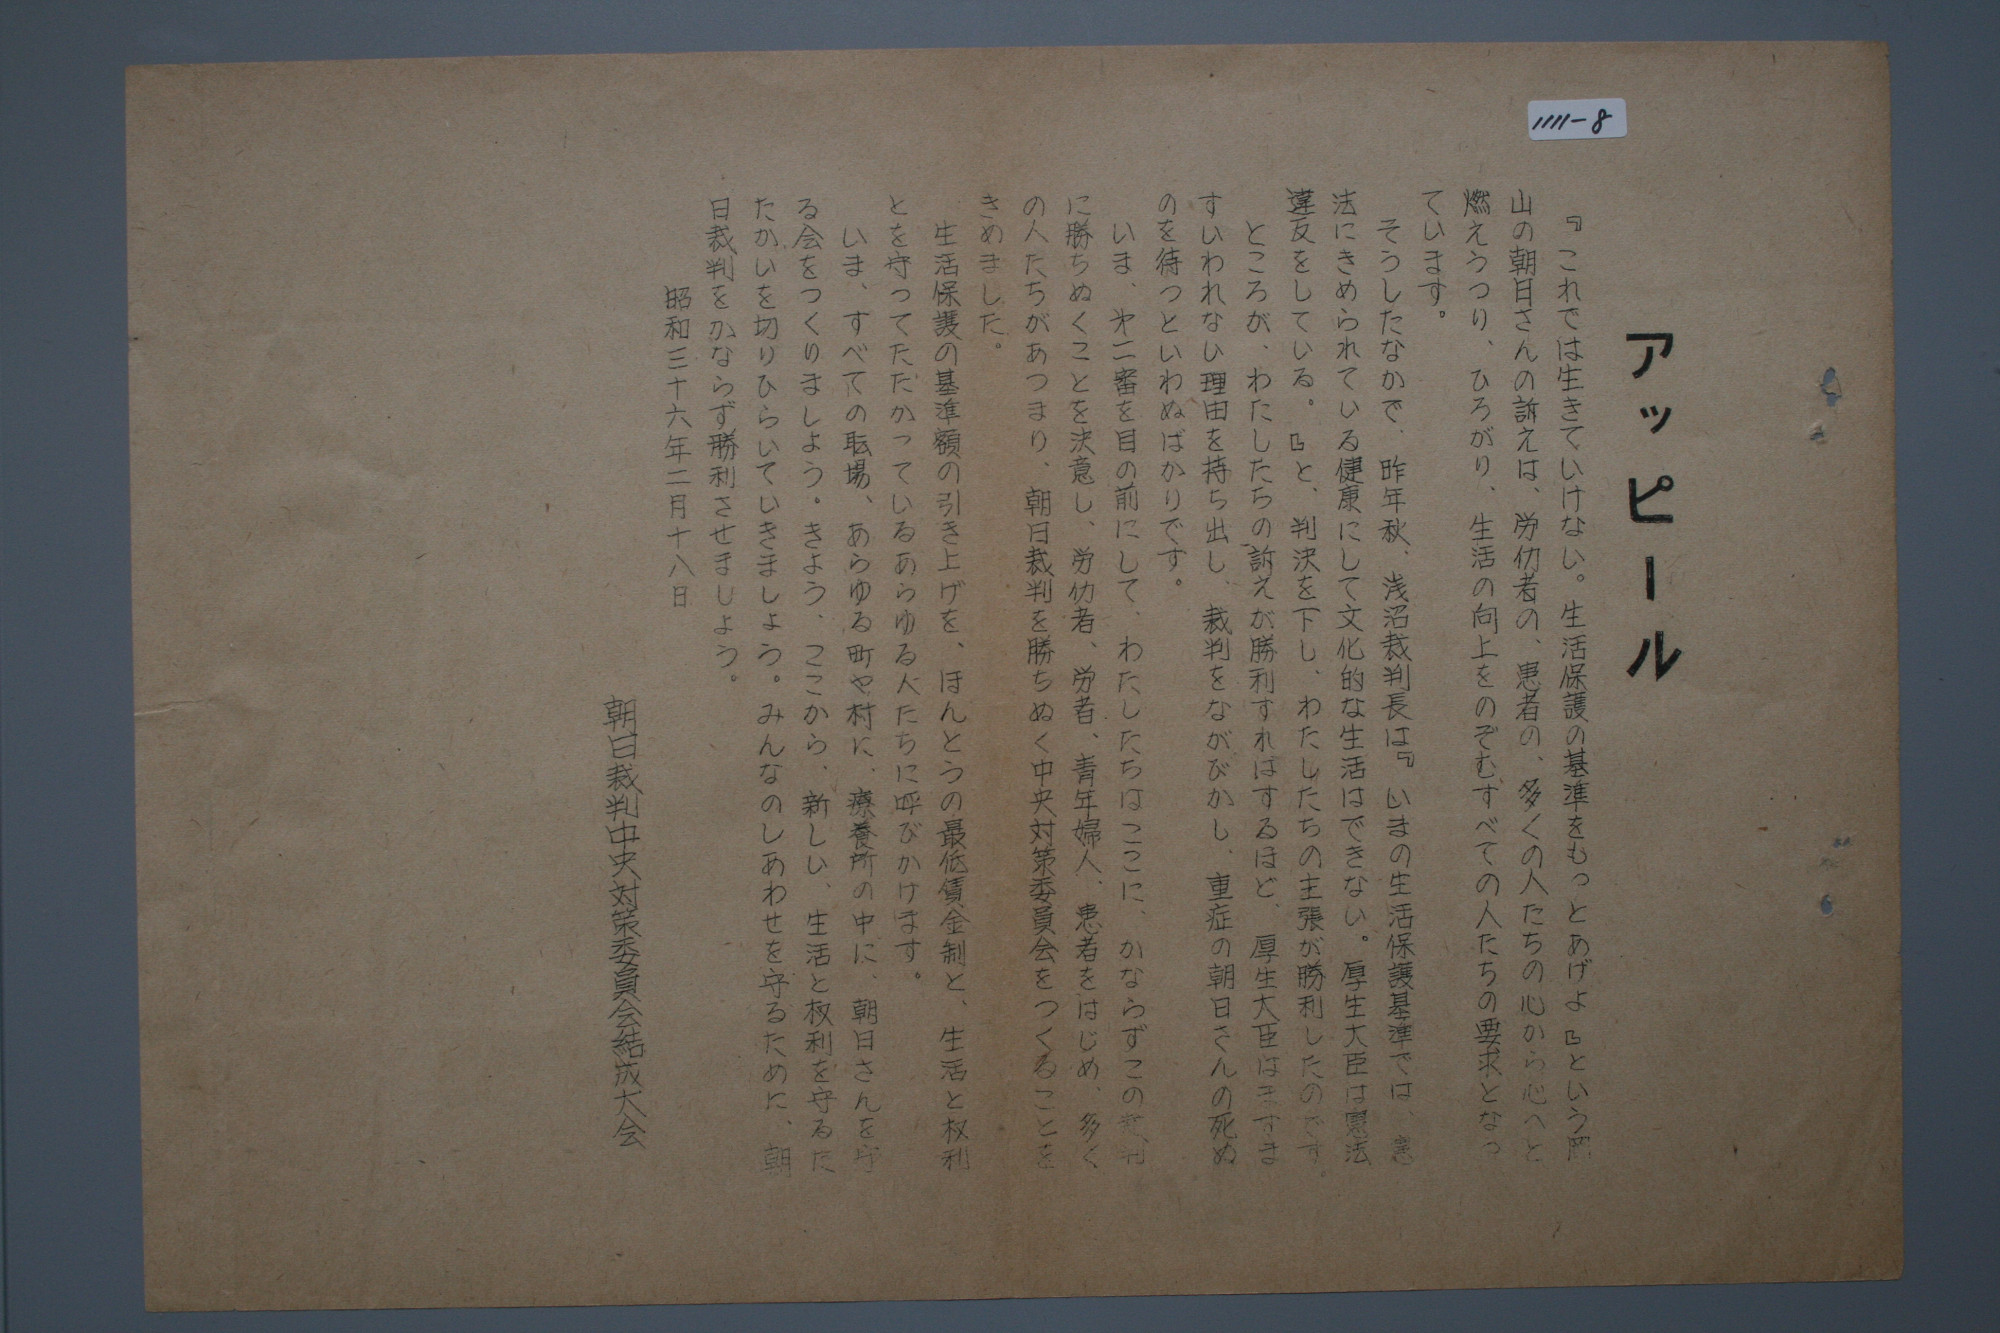 1111-8
アッピール
『これでは生きていけない。生活保護の基準をもっとあげよ』という岡
山の朝日さんの訴えは、労仂者の、患者の、多くの人たちの心から心へと
燃えうつり、ひろがり、生活の向上をのぞむすべての人たちの要求となっ
ています。
そうしたなかで、昨年秋、浅沼裁判長は『いまの生活保護基準では、憲
法にきめられている健康にして文化的な生活はできない。厚生大臣は憲法
違反をしている。』と、判決を下し、わたしたちの主張が勝利したのです。
ところが、わたしたちの訴えが勝利すればするほど、厚生大臣はますま
すいわれない理由を持ち出し、裁判をながびかし、重症の朝日さんの死ぬ
のを待つといわぬばかりです。
いま、㐧二審を目の前にして、わたしたちはここに、かならずこの裁判
に勝ちぬくことを決意し、労仂者、労者、青年婦人、患者をはじめ、多く
の人たちがあつまり、朝日裁判を勝ちぬく中央対策委員会をつくることを
きめました。
生活保護の基準額の引き上げを、ほんとうの最低賃金制と、生活と权利
とを守ってたたかっているあらゆる人たちに呼びかけます。
いま、すべての転場、あらゆる町や村に、療養所の中に、朝日さんを守
る会をつくりましよう。きよう、ここから、新しい、生活と权利を守るた
たかいを切りひらいていきましよう。みんなのしあわせを守るために、朝
日裁判をかならず勝利させましよう。
昭和三十六年二月十八日
朝日裁判中央対策委員会結成大会